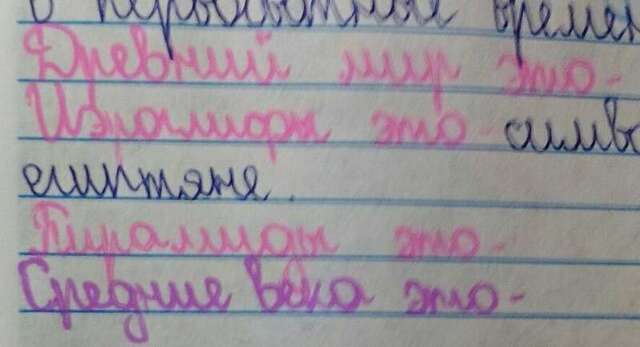 в первобытные времен
Древний мир это-
Иероглифы это- симво
египтяне.
Пирамиды это-
Средние века это-